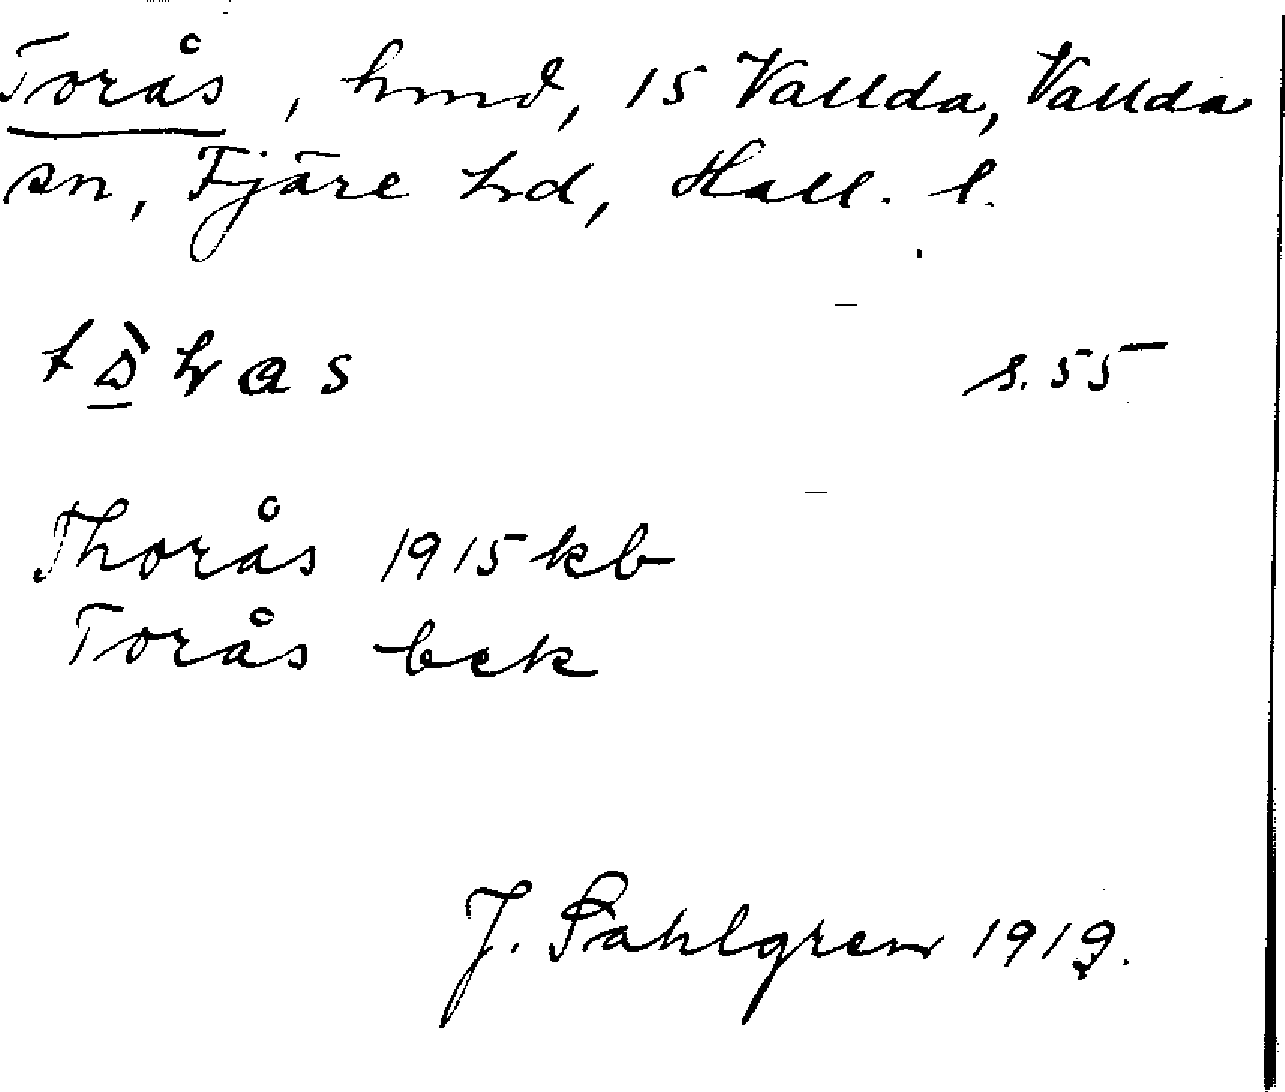 Torås, hmd, 15 Vallda, Vallda
sn, Fjäre hd, Hall. l.
s. 55
Thorås 1915 kb
Torås bek
J. Sahlgren 1919.